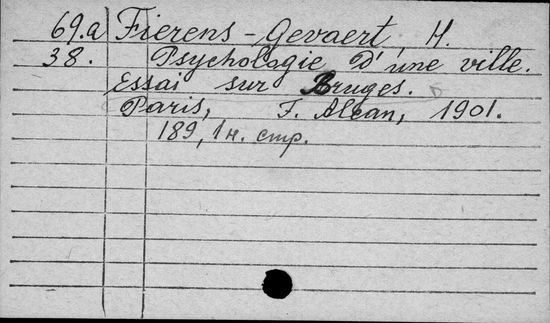 69.a Fierens-Gevaert, H.
38. Psychologie d'une ville.
Essai sur Bruges.
Paris, F. Alcan, 1901.
189, 1 н. стр.